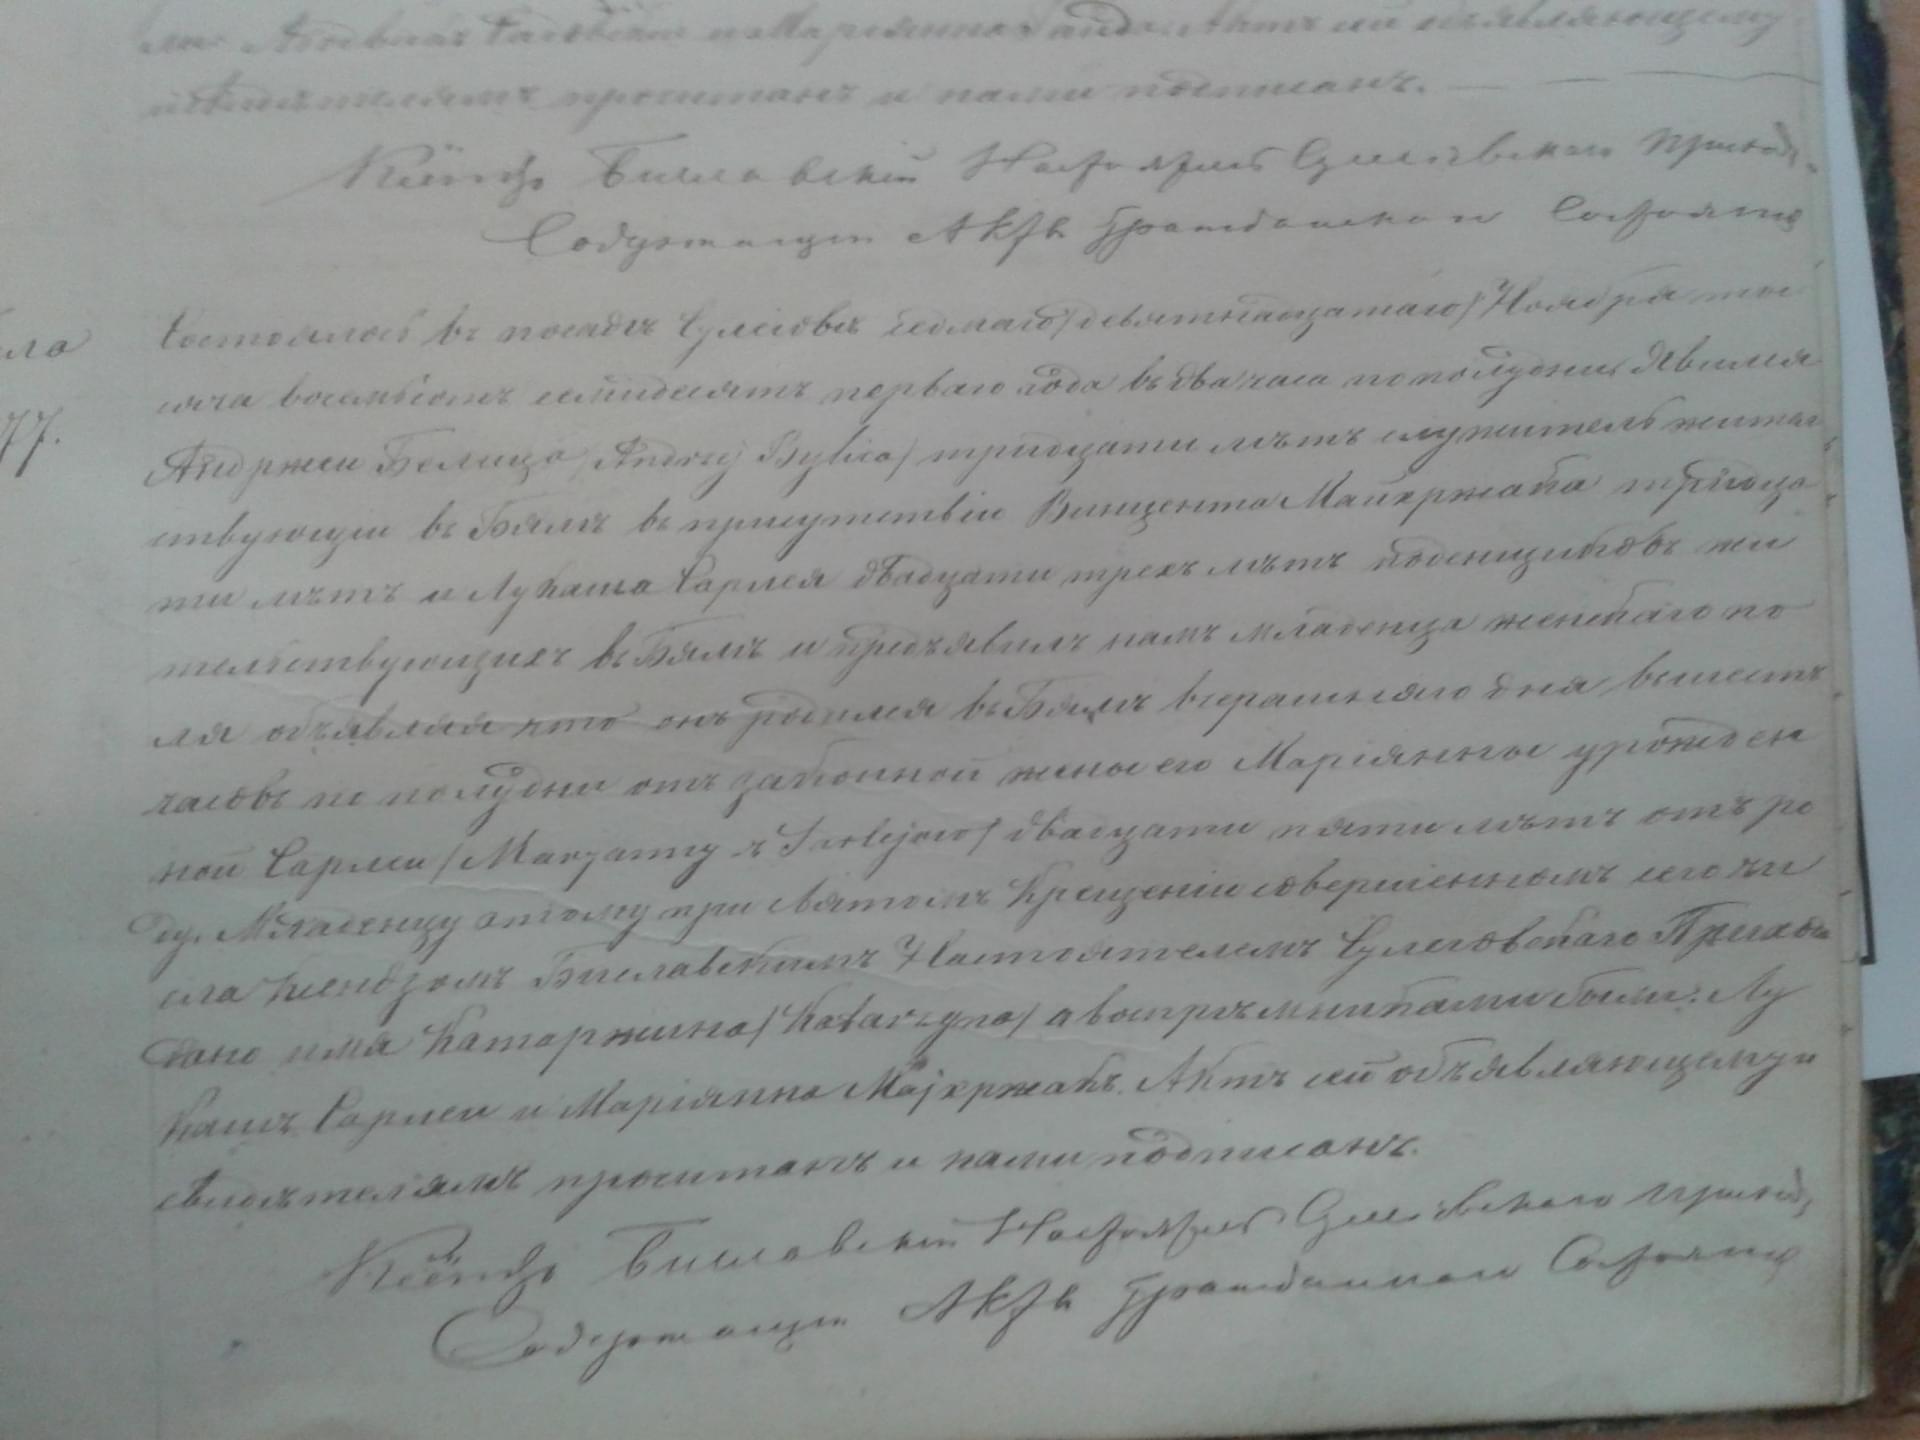 свидетелямъ прочитанъ и нами подписанъ.
Ксёндзъ Биелавскій Настоятель Сулеiовскаго Приход.
Содержащій Акты Гражданскаго Состоянія
ла
77.
Состоялось въ посадѣ Сулеіовѣ седмаго/девятнадцатаго/Ноября тыс
сяча восемьсотъ семидесятъ перваго года въ два часа по полудни, Явился
Андржеи Белица /Andrzej Bylica/ тридцати лѣтъ служитель житель
ствующіи въ Бялѣ въ присутствіи Винцента Майхржака тридца
ти лѣтъ и Лукаша Сарлея двадцати трехъ лѣтъ поденщиковъ жи
тельствующихъ въ Бялѣ и предъявилъ намъ младенца женскаго по
ла объявляя что онъ родился въ Бялѣ вчерашняго дня въ шесть
часовъ по полудни отъ законной жены его Маріянны урожден
ной Сарлеи /Maryanny z Sarlejow/ двадцати пяти лѣтъ отъ ро
ду. Младенцу этому при святомъ Крещеніи совершенномъ сего чи
сла Ксендзомъ Биелавскимъ Настоятелемъ Сулеіовскаго Прихода
дано имя Катаржина /Katarzyna/ а воспріемниками были: Лу
кашъ Сарлеи и Маріянна Маjхржакъ. Актъ сей объявляющему и
свидѣтелямъ прочитанъ и нами подписанъ.
Ксёндзъ Биелавскій Настоятель Сулеіовскаго Приход.
Содержащій Акты Гражданскаго Состоянія